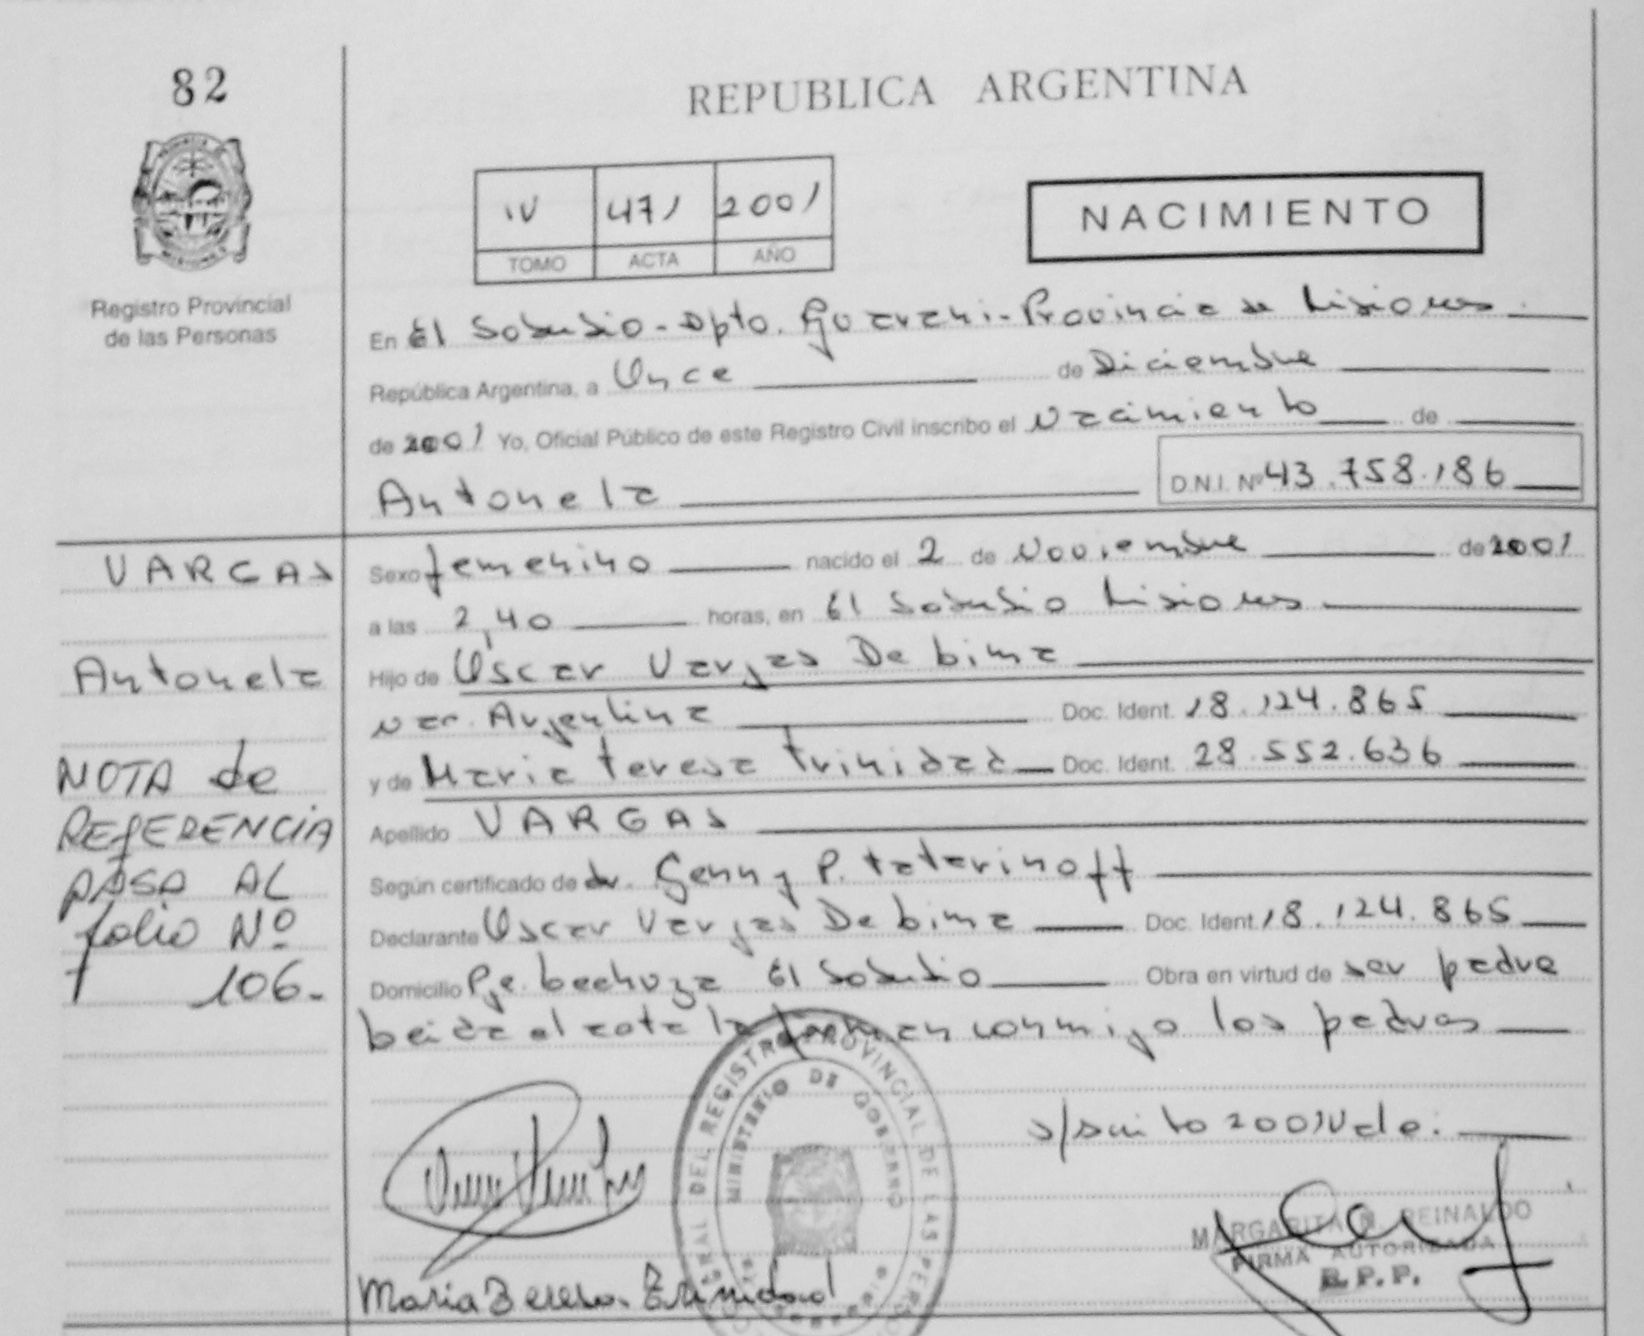 82
REPUBLICA ARGENTINA
IV 471 2001
TOMO ACTA AÑO
NACIMIENTO
Registro Provincial
de las Personas
En El Soberbio - Dpto. Guarani - Provincia de Misiones
República Argentina, a Once de Diciembre
de 2001 Yo, Oficial Público de este Registro Civil inscribo el Nacimiento de
Antonela D.N.I. Nº 43.758.186
VARGAS
Antonela
NOTA de
REFERENCIA
PASA AL
folio Nº
106.-
Sexo femenino nacido el 2 de Noviembre de 2001
a las 2,40 horas, en El Soberbio Misiones
Hijo de Oscar Vargas De bima
nac. Argentina Doc. Ident. 18.124.865
y de Maria Teresa Trinidad Doc. Ident. 28.552.636
Apellido VARGAS
Según certificado de dr. Genny P. Tatarinoff
Declarante Oscar Vargas De bima Doc. Ident. 18.124.865
Domicilio Pje. bechuga El Soberbio Obra en virtud de ser padre
leida el acta la firman conmigo los padres
s/scrito 2001 Vale.
REGISTRO PROVINCIAL DE LAS
MINISTERIO DE GOBIERNO
Maria Teresa Trinidad
MARGARITA N. REINALDO
FIRMA AUTORIZADA
R.P.P.